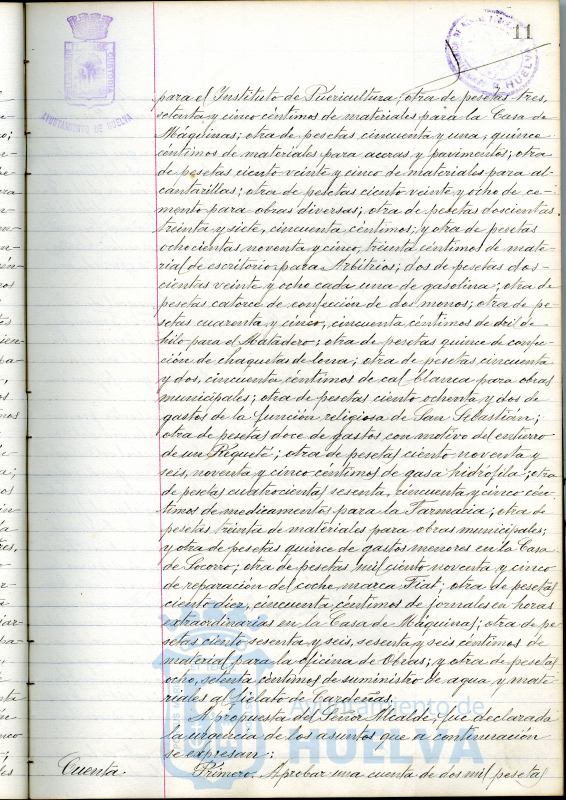 11
AYUNTAMIENTO DE HUELVA
HUELVA
para el Instituto de Puericultura; otra de pesetas tres,
setenta y cinco céntimos de materiales para la Casa de
Máquinas; otra de pesetas cincuenta y una, quince
céntimos de materiales para aceras y pavimentos; otra
de pesetas ciento veinte y cinco de materiales para al-
cantarillas; otra de pesetas ciento veinte y ocho de ce-
mento para obras diversas; otra de pesetas doscientas
treinta y siete, cincuenta céntimos; y otra de pesetas
ochocientas noventa y cinco, treinta céntimos de mate-
rial de escritorio para Arbitrios; dos de pesetas dos-
cientas veinte y ocho cada una de gasolina; otra de
pesetas catorce de confección de dos monos; otra de pe-
setas cuarenta y cinco, cincuenta céntimos de dril de
hilo para el Matadero; otra de pesetas quince de confec-
ción de chaquetas de lona; otra de pesetas cincuenta
y dos, cincuenta céntimos de cal blanca para obras
municipales; otra de pesetas ciento ochenta y dos de
gastos de la función religiosa de San Sebastián;
otra de pesetas doce de gastos con motivo del entierro
de un Requeté; otra de pesetas ciento noventa y
seis, noventa y cinco céntimos de gasa hidrófila; otra
de pesetas cuatrocientas sesenta, cincuenta y cinco cén-
timos de medicamentos para la Farmacia; otra de
pesetas treinta de materiales para obras municipales;
y otra de pesetas quince de gastos menores en la Casa
de Socorro; otra de pesetas mil ciento noventa y cinco
de reparación del coche marca Fiat; otra de pesetas
ciento diez, cincuenta céntimos de jornales en horas
extraordinarias en la Casa de Máquinas; otra de pe-
setas ciento sesenta y seis, sesenta y seis céntimos de
material para la oficina de Obras; y otra de pesetas
ocho, setenta céntimos de suministro de agua y mate-
riales al de Cardeñas.
A propuesta del Señor Alcalde, fue declarada
la urgencia de los asuntos que a continuación
se expresan:
Cuenta. Primero. Aprobar una cuenta de dos mil pesetas
Ayuntamiento de
HUELVA